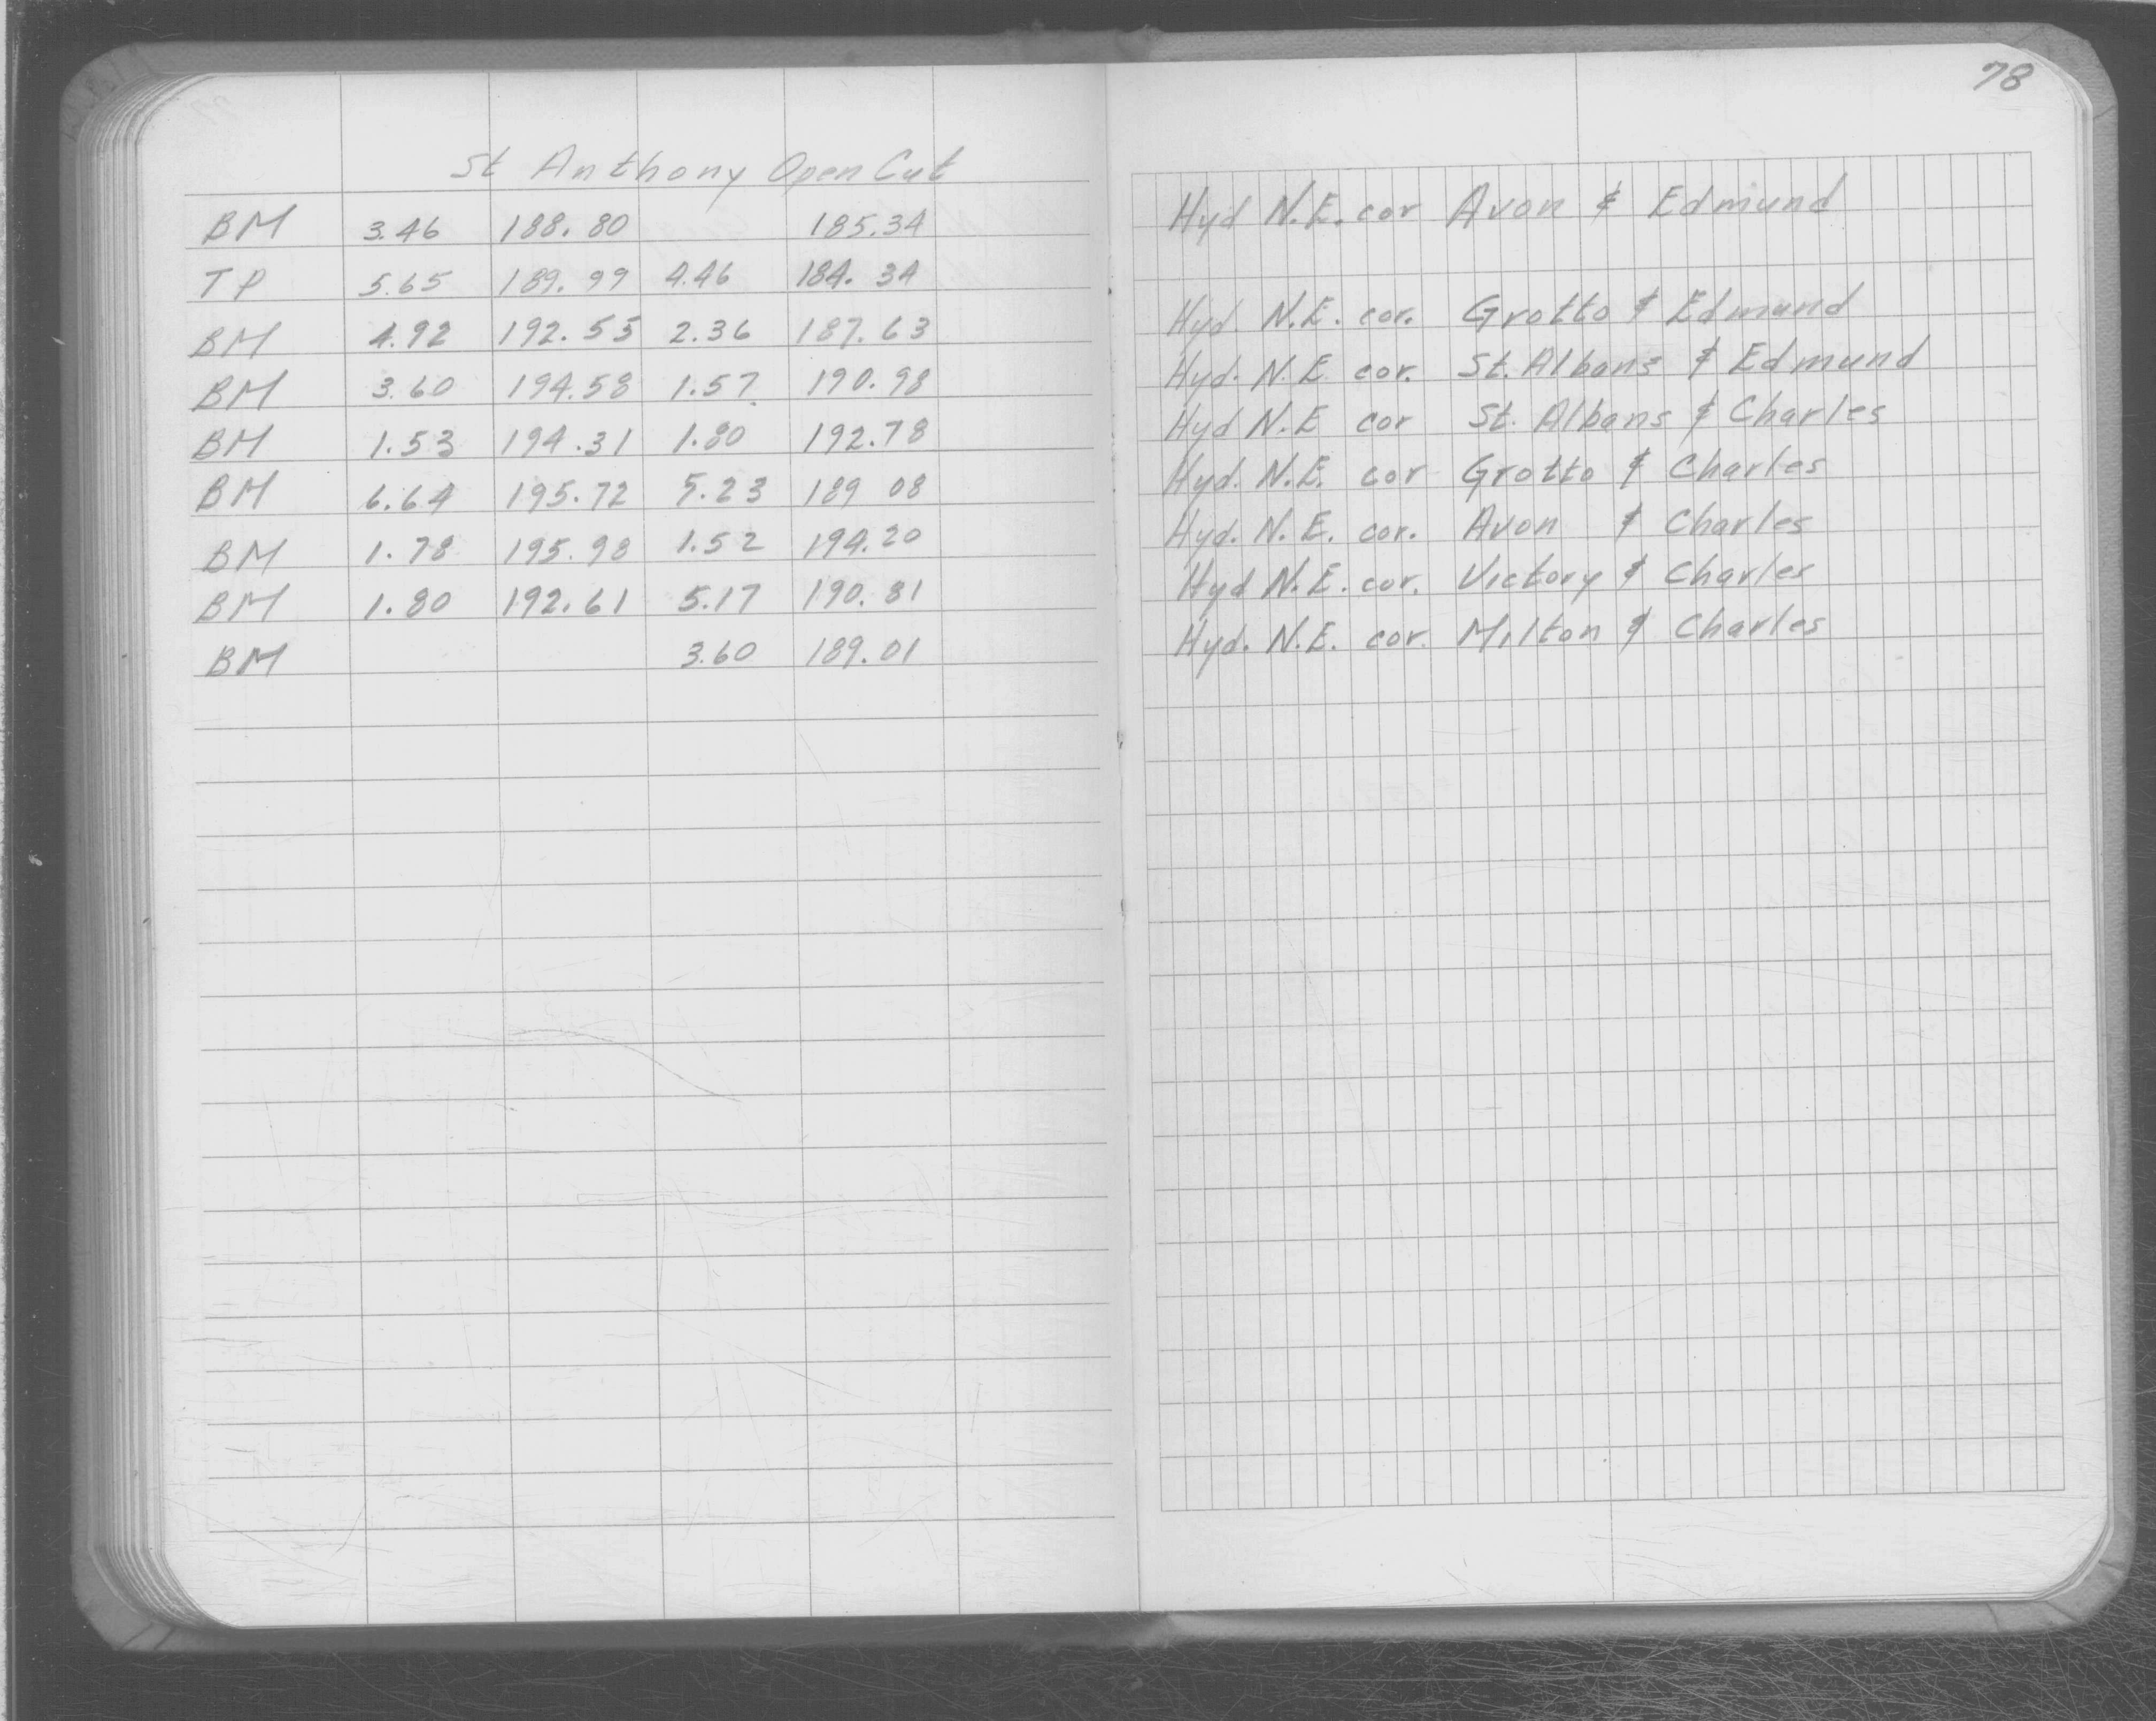 78
St Anthony Open Cut
BM 3.46 188.80 185.34 Hyd N.E. cor Avon & Edmund
TP 5.65 189.99 4.46 184.34
BM 4.92 192.55 2.36 187.63 Hyd. N.E. cor. Grotto & Edmund
BM 3.60 194.58 1.57 190.98 Hyd. N.E cor. St. Albans & Edmund
BM 1.53 194.31 1.80 192.78 Hyd N.E cor St. Albans & Charles
BM 6.64 195.72 5.23 189 08 Hyd. N.E. cor Grotto & Charles
BM 1.78 195.98 1.52 194.20 Hyd. N.E. cor. Avon & Charles
BM 1.80 192.61 5.17 190.81 Hyd N.E. cor. Victory & Charles
BM 3.60 189.01 Hyd. N.E. cor. Milton & Charles